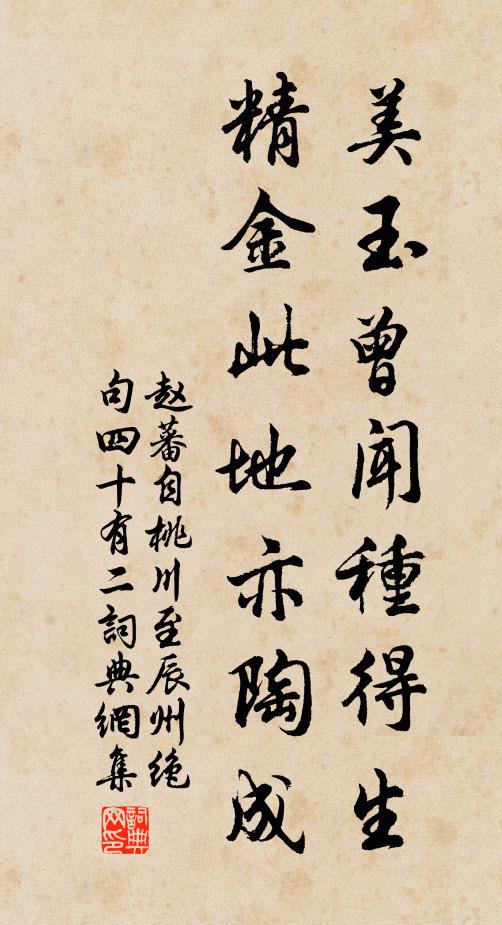 美玉曾闻種得生
精金此地亦陶成
赵蕃自桃川至辰州绝
句四十有二詞典網集
詞典
网印